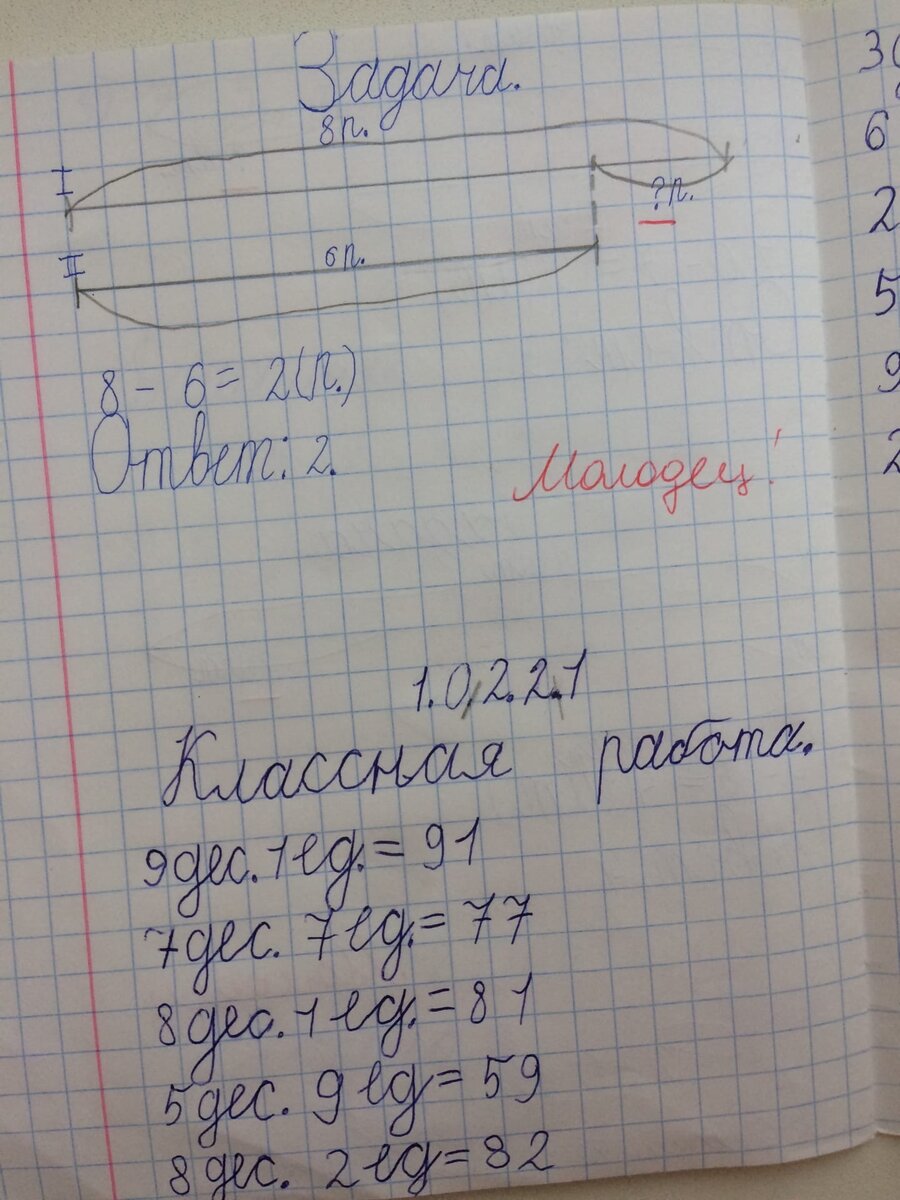 Задача.
8 п.
I
? п.
II
6 п.
8 - 6 = 2 (п.)
Ответ: 2.
Молодец!
1.02.21
Классная работа.
9 дес. 1 ед. = 91
7 дес. 7 ед. = 77
8 дес. 1 ед. = 81
5 дес. 9 ед = 59
8 дес. 2 ед = 82
6
2
5
9
2